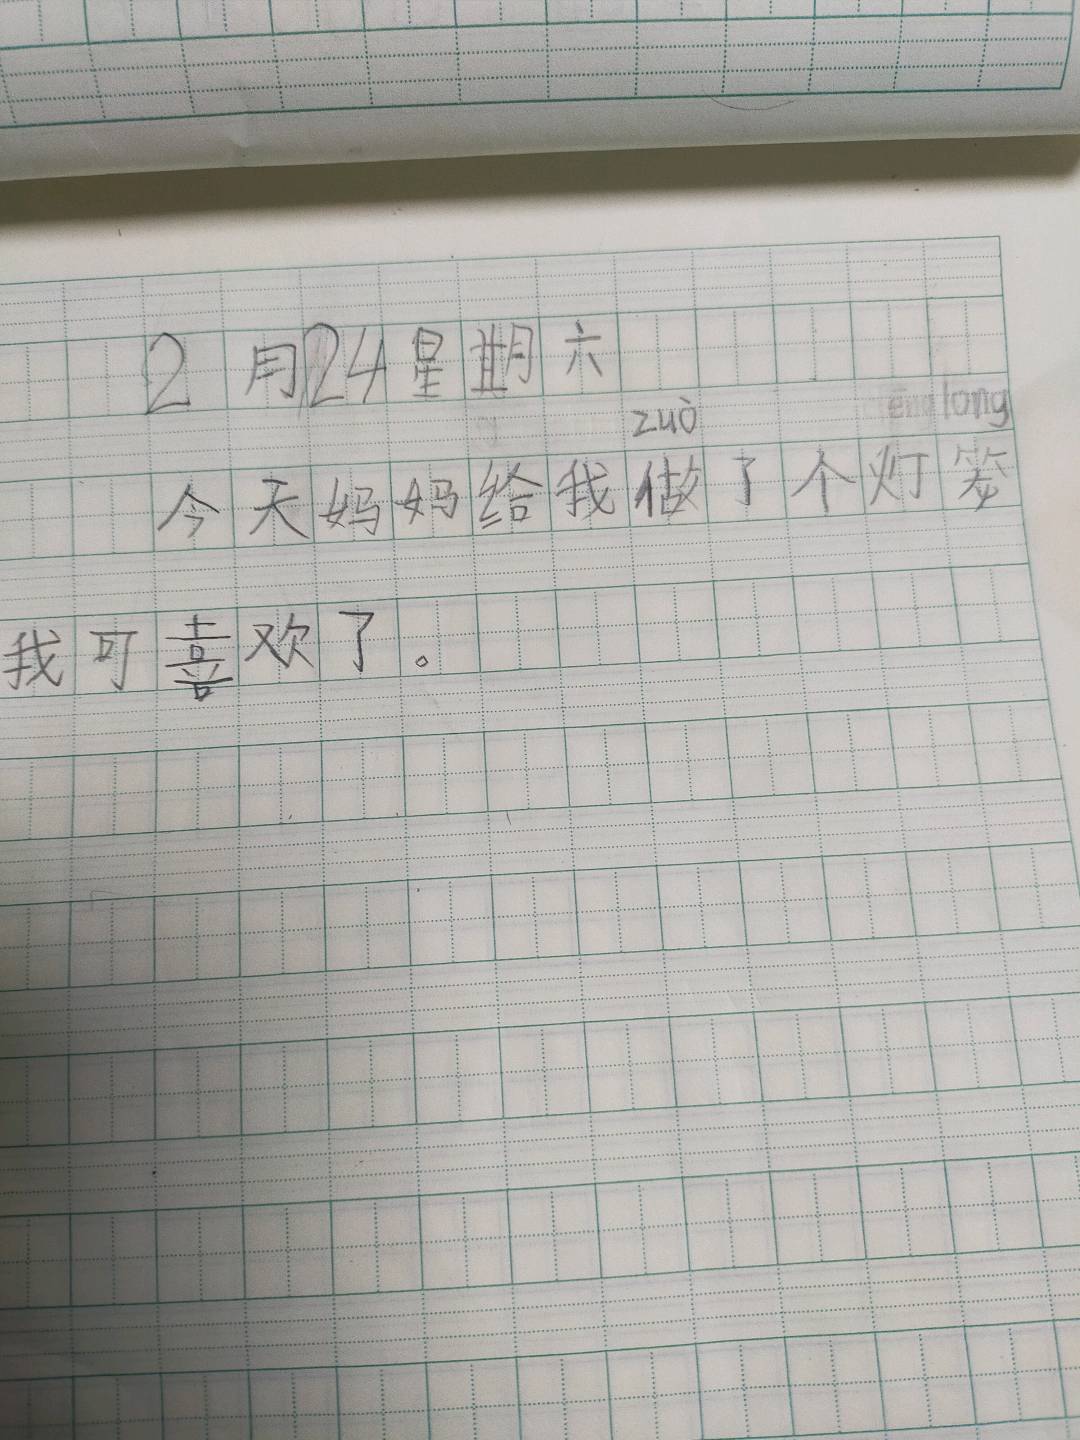 2月24星期六
zuò long
今天妈妈给我做了个灯笼
我可喜欢了。